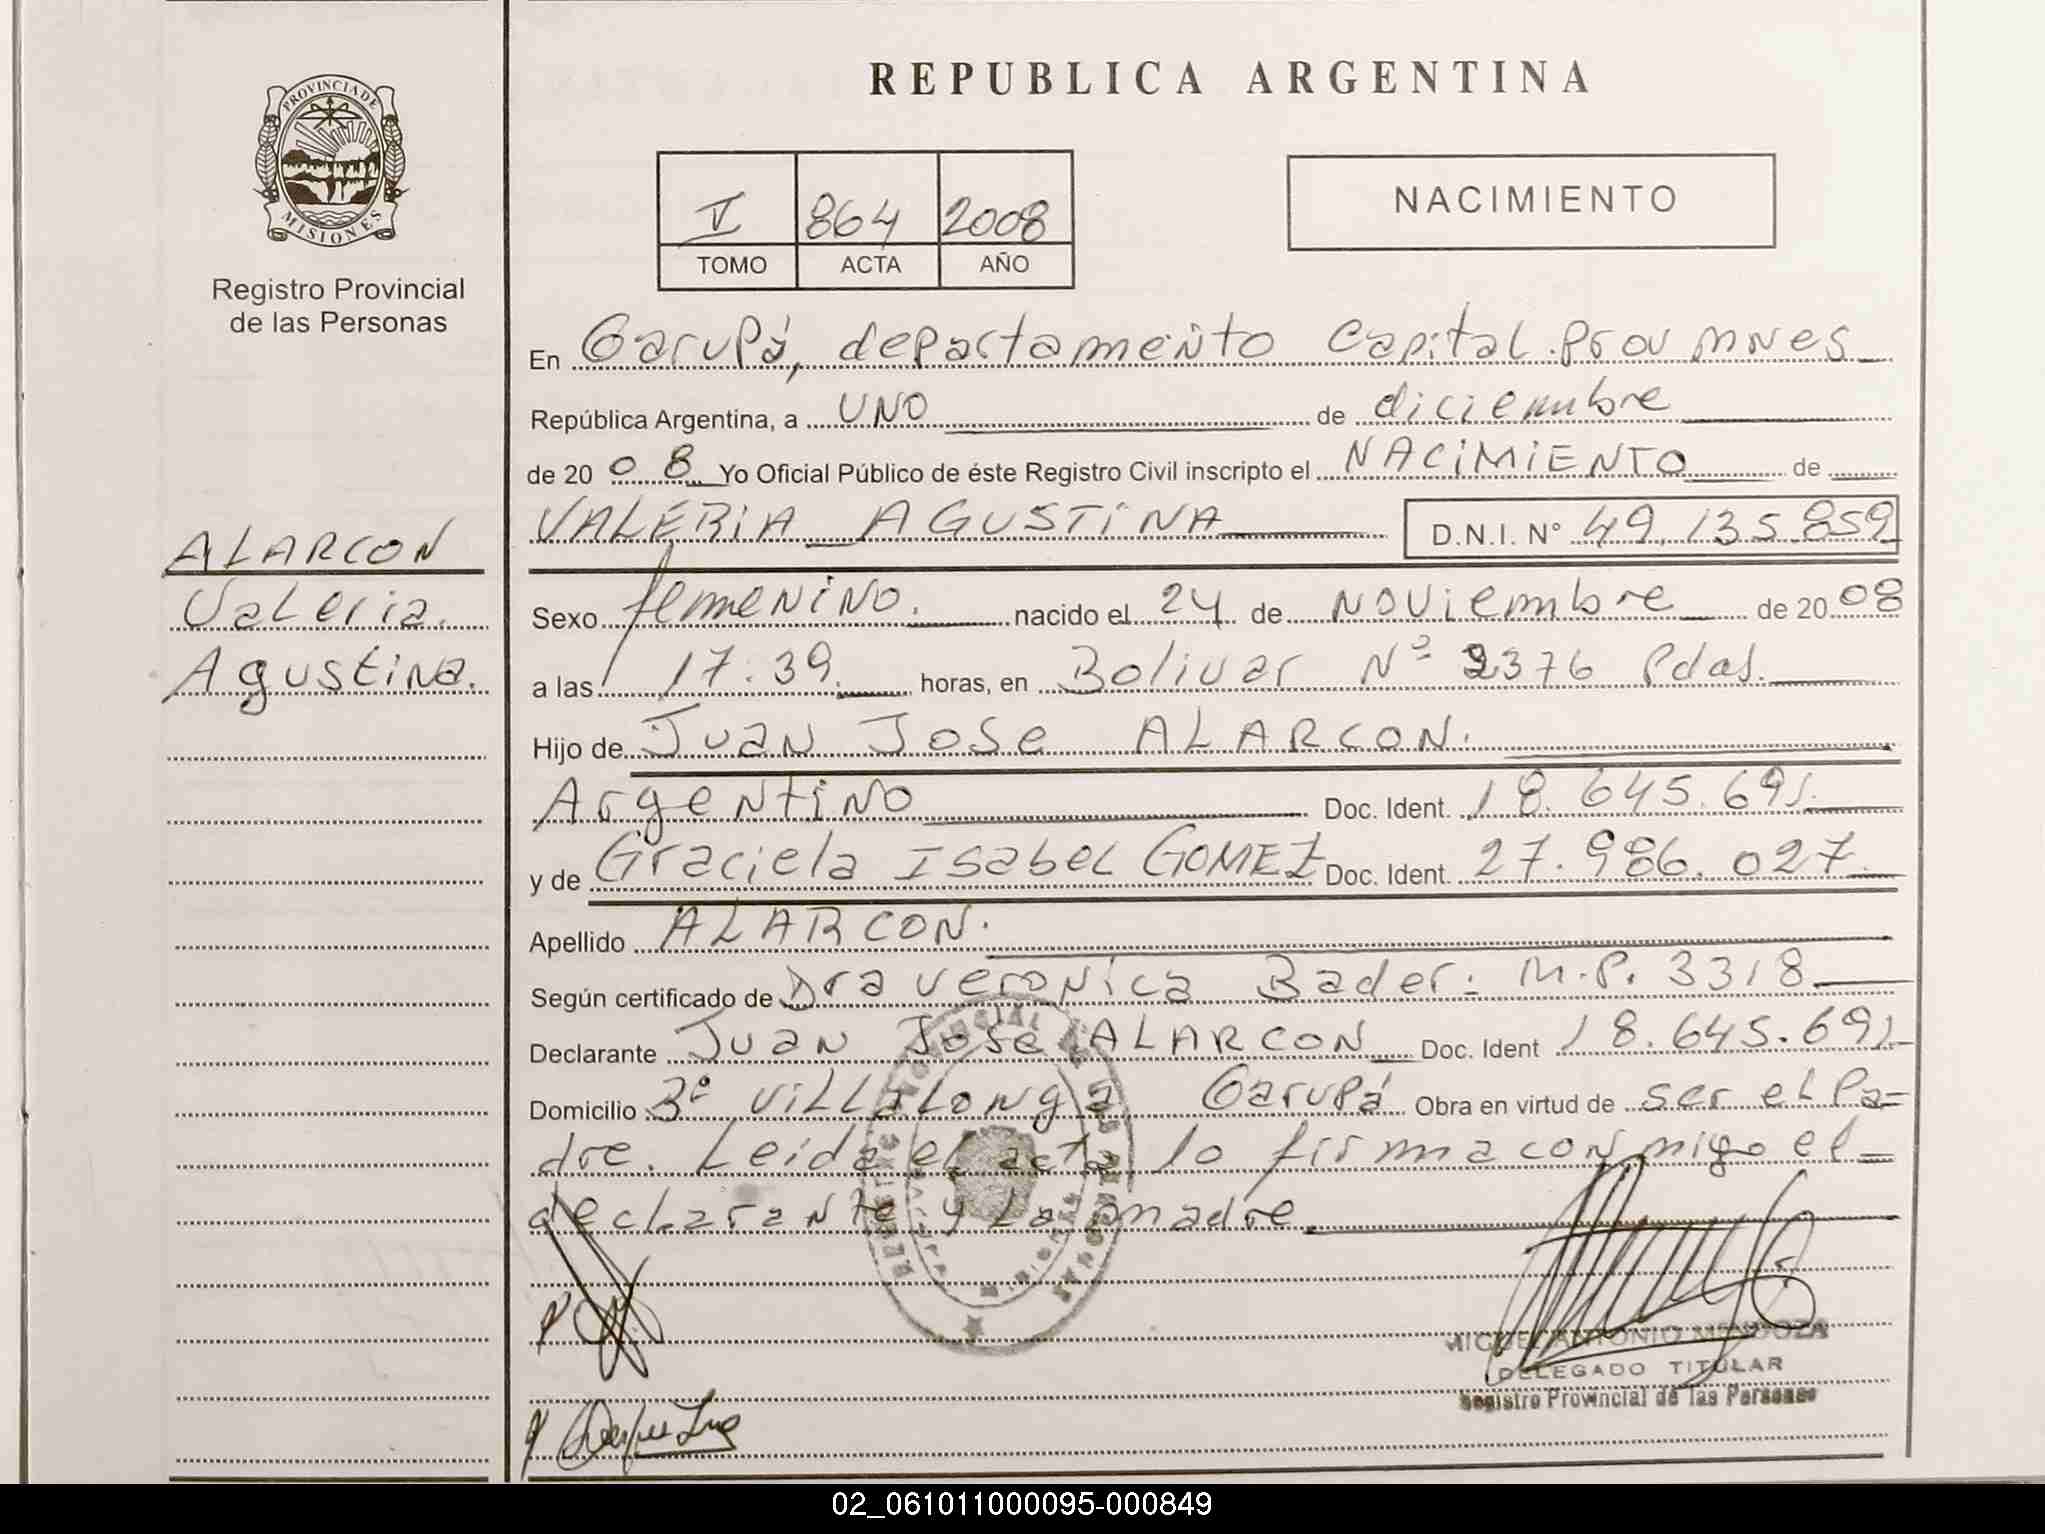 PROVINCIA DE
MISIONES
Registro Provincial
de las Personas
ALARCON
Valeria.
Agustina.
REPUBLICA ARGENTINA
V 864 2008
TOMO ACTA AÑO
NACIMIENTO
En Garupá, departamento Capital. prov mnes
República Argentina, a UNO de diciembre
de 20 08 Yo Oficial Público de éste Registro Civil inscripto el NACIMIENTO de
VALERIA AGUSTINA D.N.I. N° 49.135.859
Sexo femenino. nacido el 24 de noviembre de 20 08
a las 17:39. horas, en Bolivar N° 2376 Pdas.
Hijo de Juan Jose ALARCON.
Argentino Doc. Ident. 18.645.691.
y de Graciela Isabel GOMEZ Doc. Ident. 27.986.027.
Apellido ALARCON.
Según certificado de Dra veronica Bader: M.P. 3318
Declarante Juan Jose ALARCON Doc. Ident 18.645.691.
Domicilio B° Villalonga Garupá Obra en virtud de ser el Pa=
dre. Leida el acta lo firma conmigo el
declarante y la madre.
MIGUEL ANTONIO MENDOZA
DELEGADO TITULAR
Registro Provincial de las Personas
02_061011000095-000849